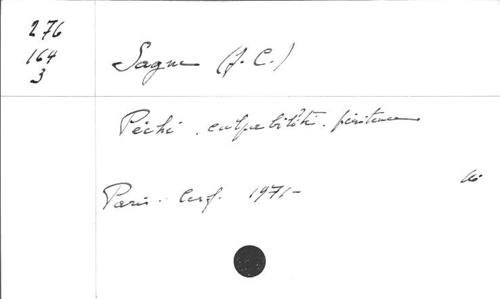 276
164
3
Sagne (J. C.)
Péché. culpabilité. pénitence
Paris. Cerf. 1971-